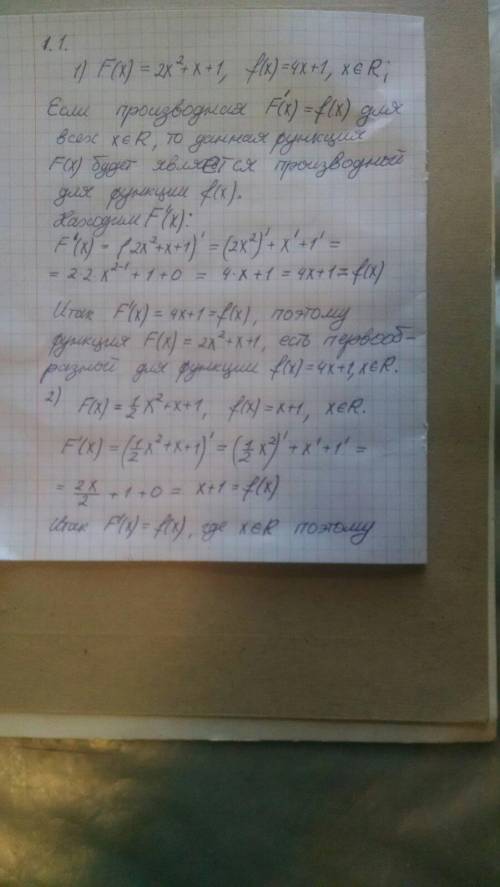 1.1.
1) F(x) = 2x²+x+1, f(x)=4x+1, x∈R;
Если производная F'(x)=f(x) для
всех x∈R, то данная функция
F(x) будет является производной
для функции f(x).
Находим F'(x):
F'(x) = (2x²+x+1)' = (2x²)'+x'+1' =
= 2·2x²⁻¹+1+0 = 4·x+1 = 4x+1=f(x)
Итак F'(x)=4x+1=f(x), поэтому
функция F(x)=2x²+x+1, есть первооб-
разной для функции f(x)=4x+1, x∈R.
2)
F(x)=1/2x²+x+1, f(x)=x+1, x∈R.
F'(x)=(1/2x²+x+1)'=(1/2x²)'+x'+1'=
= 2x/2 +1+0 = x+1=f(x)
Итак F'(x)=f(x), где x∈R поэтому